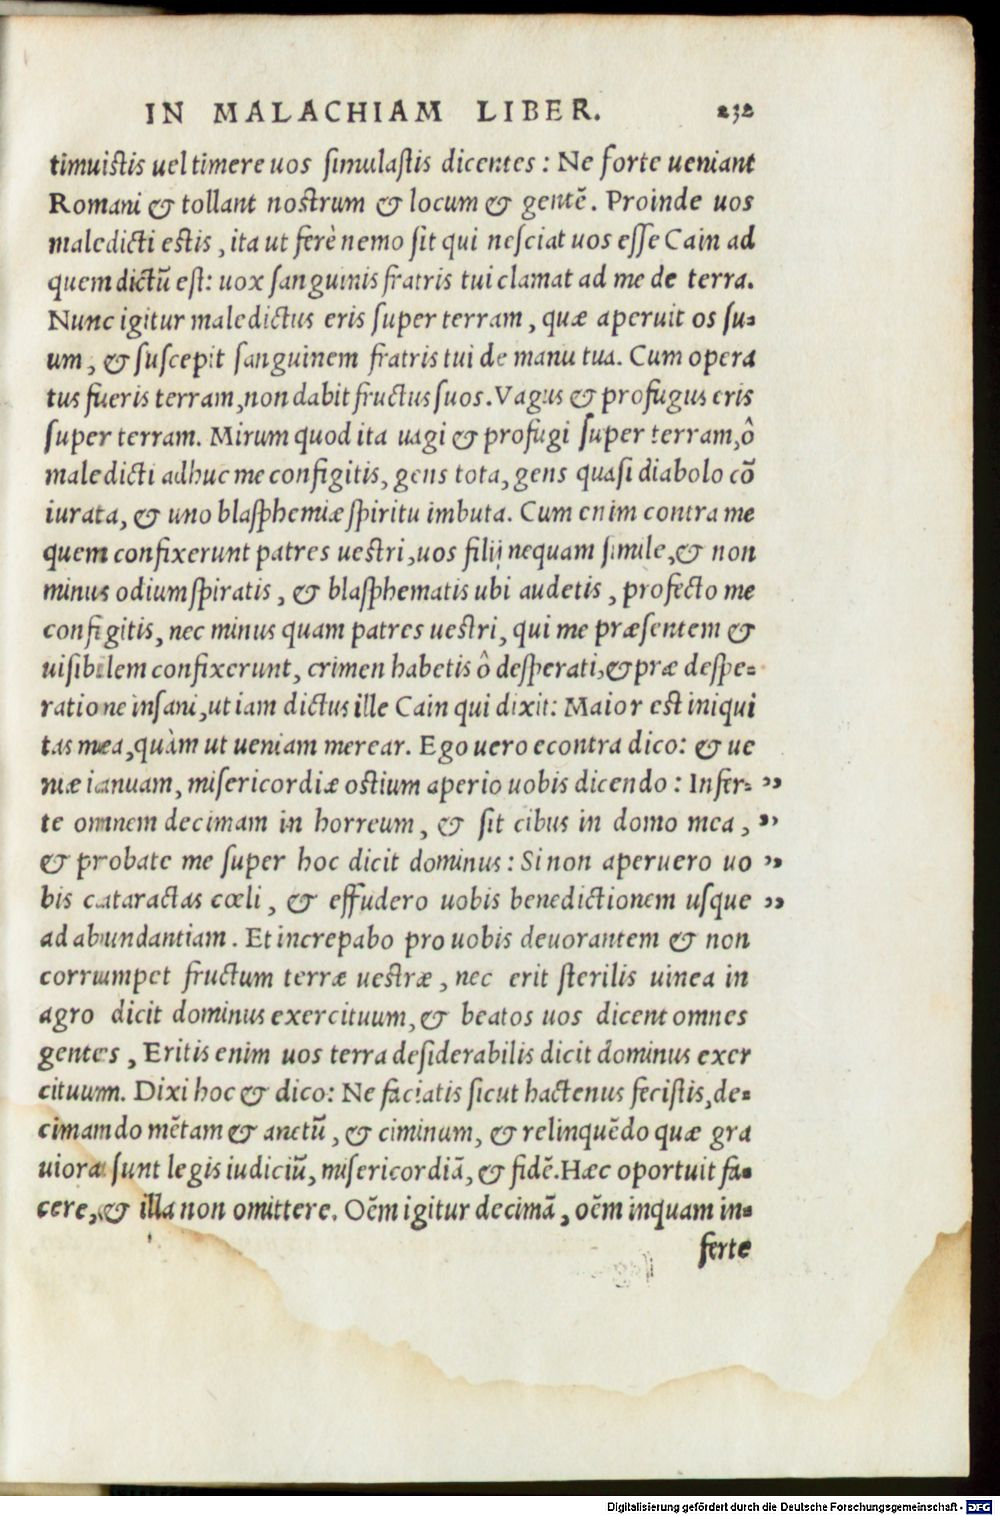 IN MALACHIAM LIBER. 232
timuistis uel timere uos simulastis dicentes: Ne forte ueniant
Romani & tollant nostrum & locum & gentē. Proinde uos
maledicti estis, ita ut ferè nemo sit qui nesciat uos esse Cain ad
quem dictū est: uox sanguinis fratris tui clamat ad me de terra.
Nunc igitur maledictus eris super terram, quæ aperuit os su-
um, & suscepit sanguinem fratris tui de manu tua. Cum opera
tus fueris terram, non dabit fructus suos. Vagus & profugus eris
super terram. Mirum quod ita uagi & profugi super terram, ô
maledicti adhuc me configitis, gens tota, gens quasi diabolo cō
iurata, & uno blasphemiæ spiritu imbuta. Cum enim contra me
quem confixerunt patres uestri, uos filij nequam simile, & non
minus odium spiratis, & blasphematis ubi audetis, profecto me
configitis, nec minus quam patres uestri, qui me præsentem &
uisibilem confixerunt, crimen habetis ô desperati, & præ despe-
ratione insani, ut iam dictus ille Cain qui dixit: Maior est iniqui
tas mea, quàm ut ueniam merear. Ego uero econtra dico: & ue
niæ ianuam, misericordiæ ostium aperio uobis dicendo: Infer- ,,
te omnem decimam in horreum, & sit cibus in domo mea, ,,
& probate me super hoc dicit dominus: Si non aperuero uo ,,
bis cataractas cœli, & effudero uobis benedictionem usque ,,
ad abundantiam. Et increpabo pro uobis deuorantem & non
corrumpet fructum terræ uestræ, nec erit sterilis uinea in
agro dicit dominus exercituum, & beatos uos dicent omnes
gentes, Eritis enim uos terra desiderabilis dicit dominus exer
cituum. Dixi hoc & dico: Ne faciatis sicut hactenus fecistis, de-
cimamdo mētam & anetū, & ciminum, & relinquēdo quæ gra
uiora sunt legis iudiciū, misericordiā, & fidē. Hæc oportuit fa-
cere, & illa non omittere. Oēm igitur decimā, oēm inquam in-
ferte
Digitalisierung gefördert durch die Deutsche Forschungsgemeinschaft - DFG